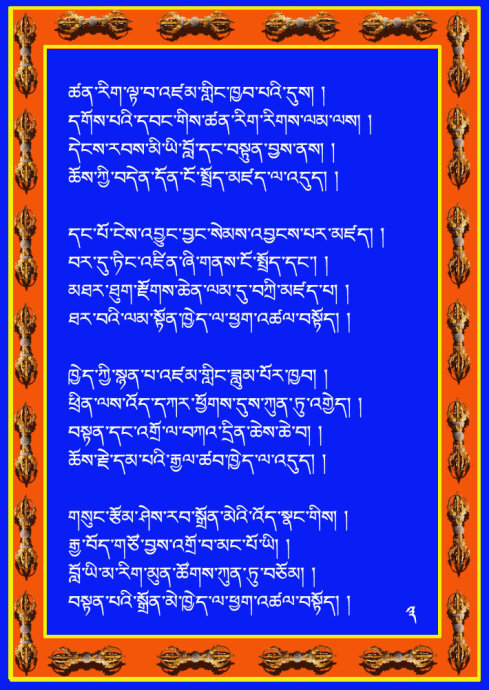 ཚན་རིག་ལྟ་བ་འཛམ་གླིང་ཁྱབ་པའི་དུས། །
དགོས་པའི་དབང་གིས་ཚན་རིག་རིགས་ལམ་ལས། །
དེངས་རབས་མི་ཡི་བློ་དང་བསྟུན་བྱས་ནས། །
ཆོས་ཀྱི་བདེན་དོན་ངོ་སྤྲོད་མཛད་ལ་འདུད། །
དང་པོ་ངེས་འབྱུང་བྱང་སེམས་འབྱངས་པར་མཛད། །
བར་དུ་ཏིང་འཛིན་ཞི་གནས་ངོ་སྤྲོད་དང་། །
མཐར་ཐུག་རྫོགས་ཆེན་ལམ་དུ་བཀྲི་མཛད་པ། །
ཐར་བའི་ལམ་སྟོན་ཁྱེད་ལ་ཕྱག་འཚལ་བསྟོད། །
ཁྱེད་ཀྱི་སྙན་པ་འཛམ་གླིང་ཟླུམ་པོར་ཁྱབ། །
ཕྲིན་ལས་འོད་དཀར་ཕྱོགས་དུས་ཀུན་ཏུ་འགྱེད། །
བསྟན་དང་འགྲོ་ལ་བཀའ་དྲིན་ཆེས་ཆེ་བ། །
ཆོས་རྗེ་དམ་པའི་རྒྱལ་ཚབ་ཁྱེད་ལ་འདུད། །
གསུང་རྩོམ་ཤེས་རབ་སྒྲོན་མེའི་འོད་སྣང་གིས། །
རྒྱ་བོད་གཙོ་བྱས་འགྲོ་བ་མང་པོ་ཡི། །
བློ་ཡི་མ་རིག་མུན་ཚོགས་ཀུན་ཏུ་བཅོམ། །
བསྟན་པའི་སྒྲོན་མེ་ཁྱེད་ལ་ཕྱག་འཚལ་བསྟོད། །